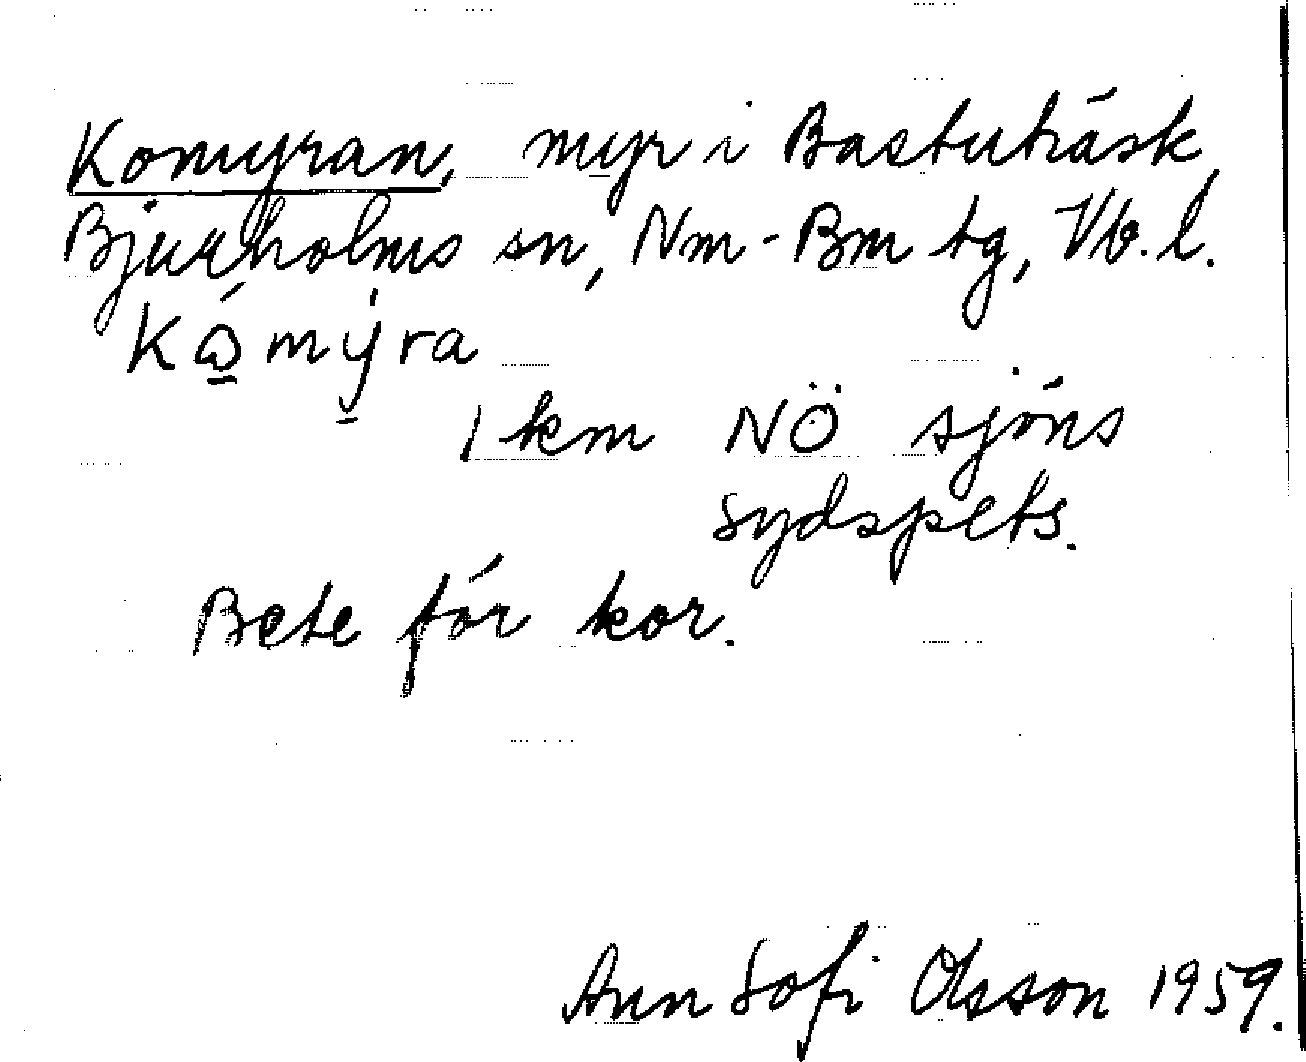 Komyran, myr i Bastuträsk,
Bjurholms sn, Nm-Bm tg, Vb. l.
Kώ̱mý̱ra
1 km NÖ sjöns
sydspets.
Bete för kor.
Ann Sofi Olsson 1959.